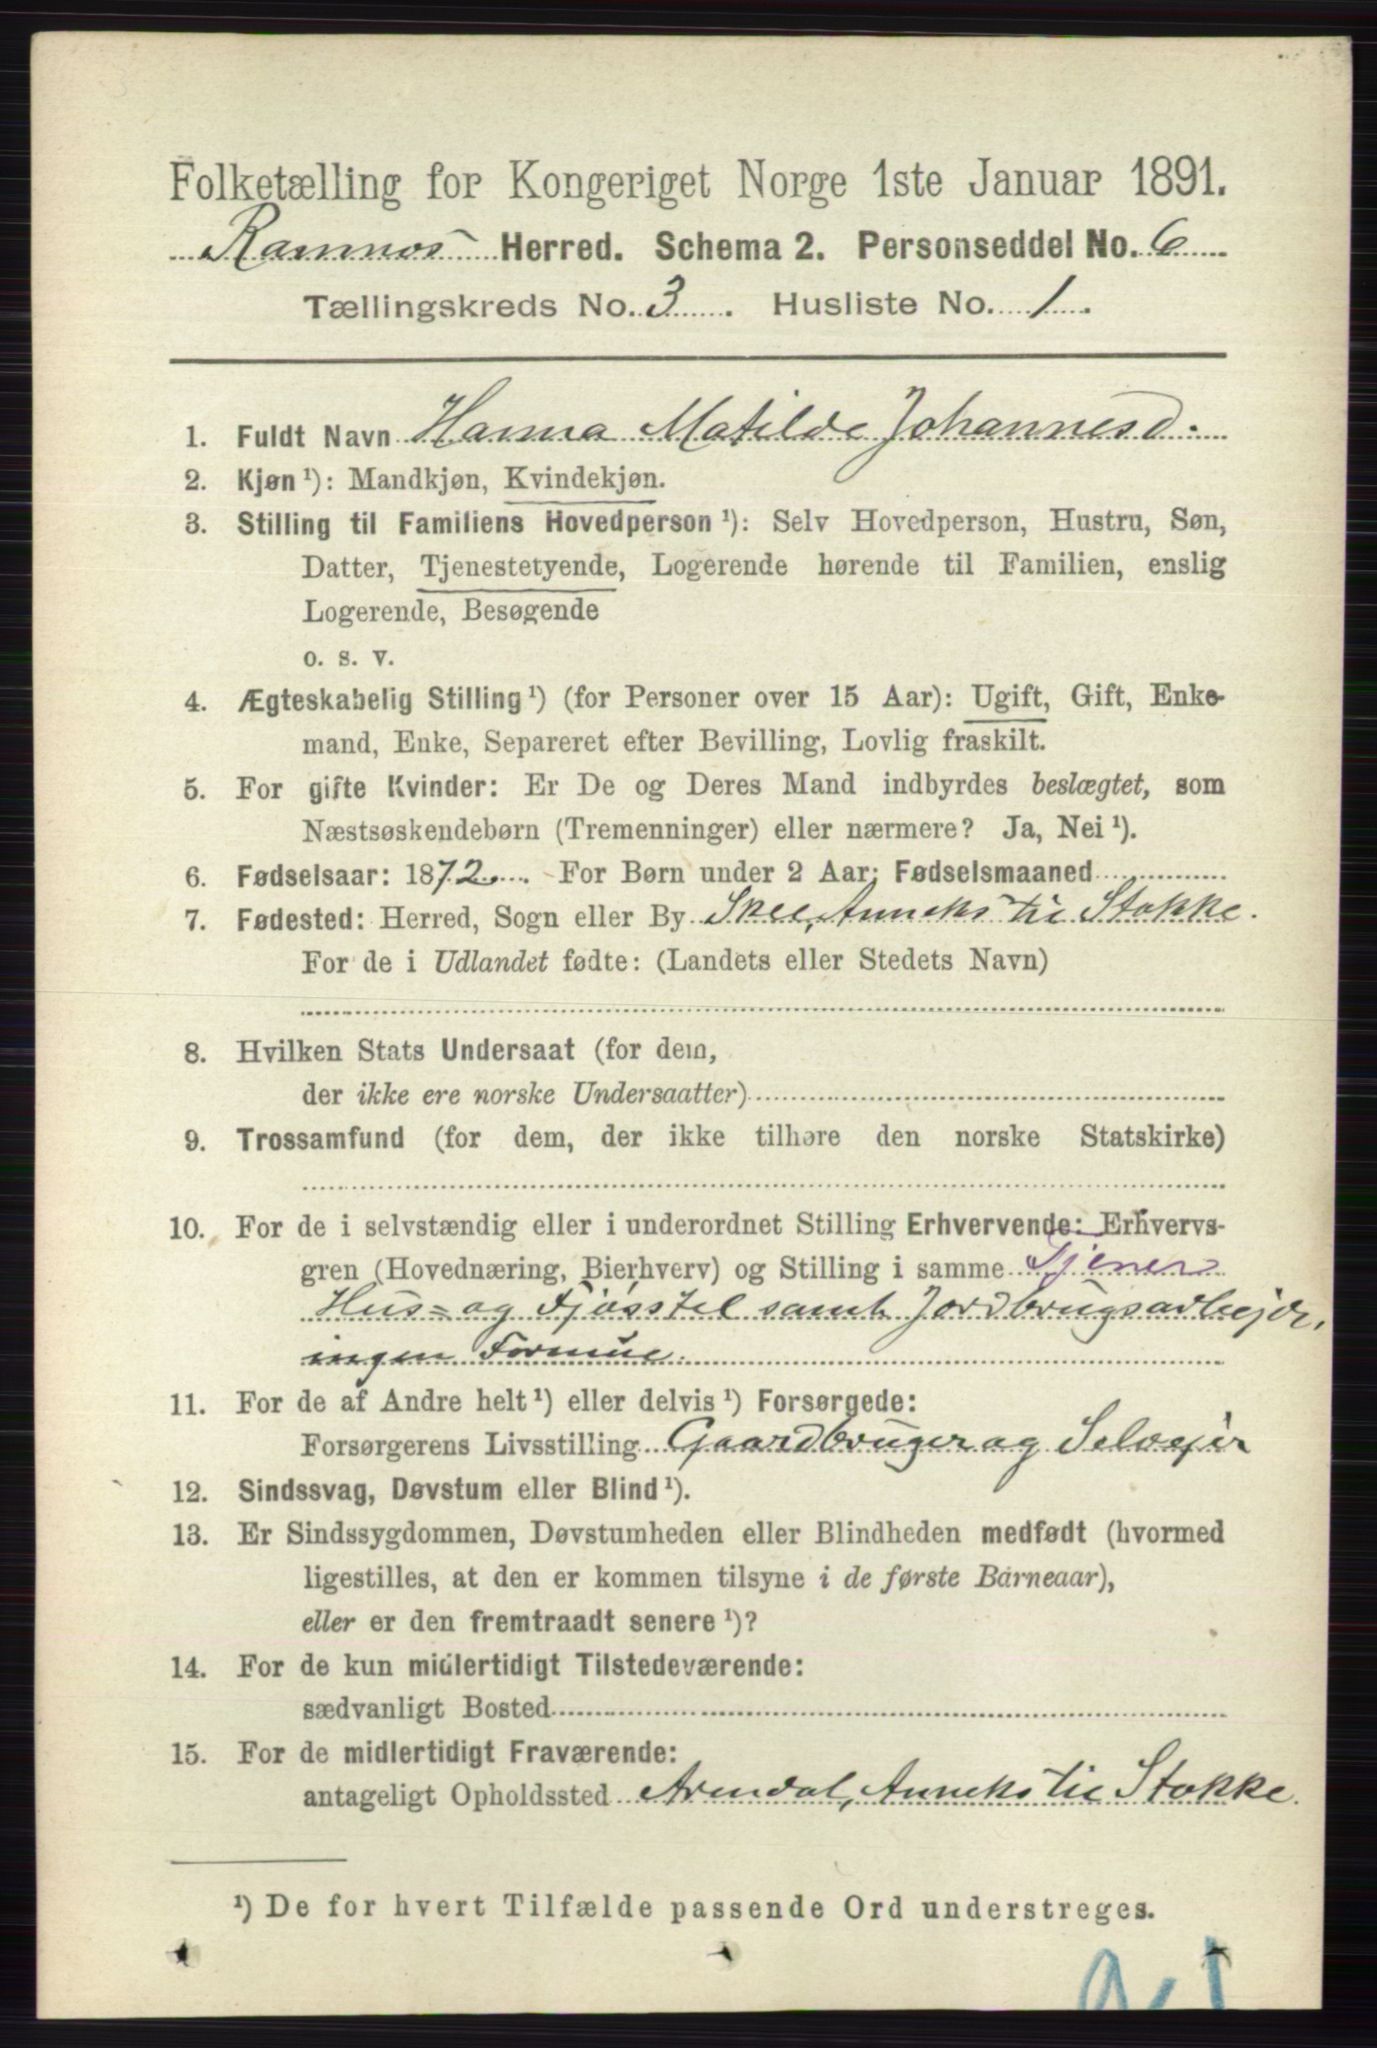 Folketælling for Kongeriget Norge 1ste Januar 1891.
Ramnes Herred. Schema 2. Personseddel No. 6
Tællingskreds No. 3. Husliste No. 1.
1. Fuldt Navn Hanna Matilde Johannesd.
2. Kjøn ¹): Mandkjøn, Kvindekjøn.
3. Stilling til Familiens Hovedperson ¹): Selv Hovedperson, Hustru, Søn,
Datter, Tjenestetyende, Logerende hørende til Familien, enslig
Logerende, Besøgende
o. s. v.
4. Ægteskabelig Stilling ¹) (for Personer over 15 Aar): Ugift, Gift, Enke-
mand, Enke, Separeret efter Bevilling, Lovlig fraskilt.
5. For gifte Kvinder: Er De og Deres Mand indbyrdes beslægtet, som
Næstsøskendebørn (Tremenninger) eller nærmere? Ja, Nei ¹).
6. Fødselsaar: 1872. For Børn under 2 Aar: Fødselsmaaned
7. Fødested: Herred, Sogn eller By Skee, Anneks til Stokke.
For de i Udlandet fødte: (Landets eller Stedets Navn)
8. Hvilken Stats Undersaat (for dem,
der ikke ere norske Undersaatter)
9. Trossamfund (for dem, der ikke tilhøre den norske Statskirke)
10. For de i selvstændig eller i underordnet Stilling Erhvervende: Erhvervs-
gren (Hovednæring, Bierhverv) og Stilling i samme Tjener
Hus- og Fjøsstel samt Jordbrugsarbejde,
ingen Formue.
11. For de af Andre helt ¹) eller delvis ¹) Forsørgede:
Forsørgerens Livsstilling Gaardbruger og Selvejer
12. Sindssvag, Døvstum eller Blind ¹).
13. Er Sindssygdommen, Døvstumheden eller Blindheden medfødt (hvormed
ligestilles, at den er kommen tilsyne i de første Barneaar),
eller er den fremtraadt senere ¹)?
14. For de kun midlertidigt Tilstedeværende:
sædvanligt Bosted
15. For de midlertidigt Fraværende:
antageligt Opholdssted Arendal, Anneks til Stokke.
¹) De for hvert Tilfælde passende Ord understreges.